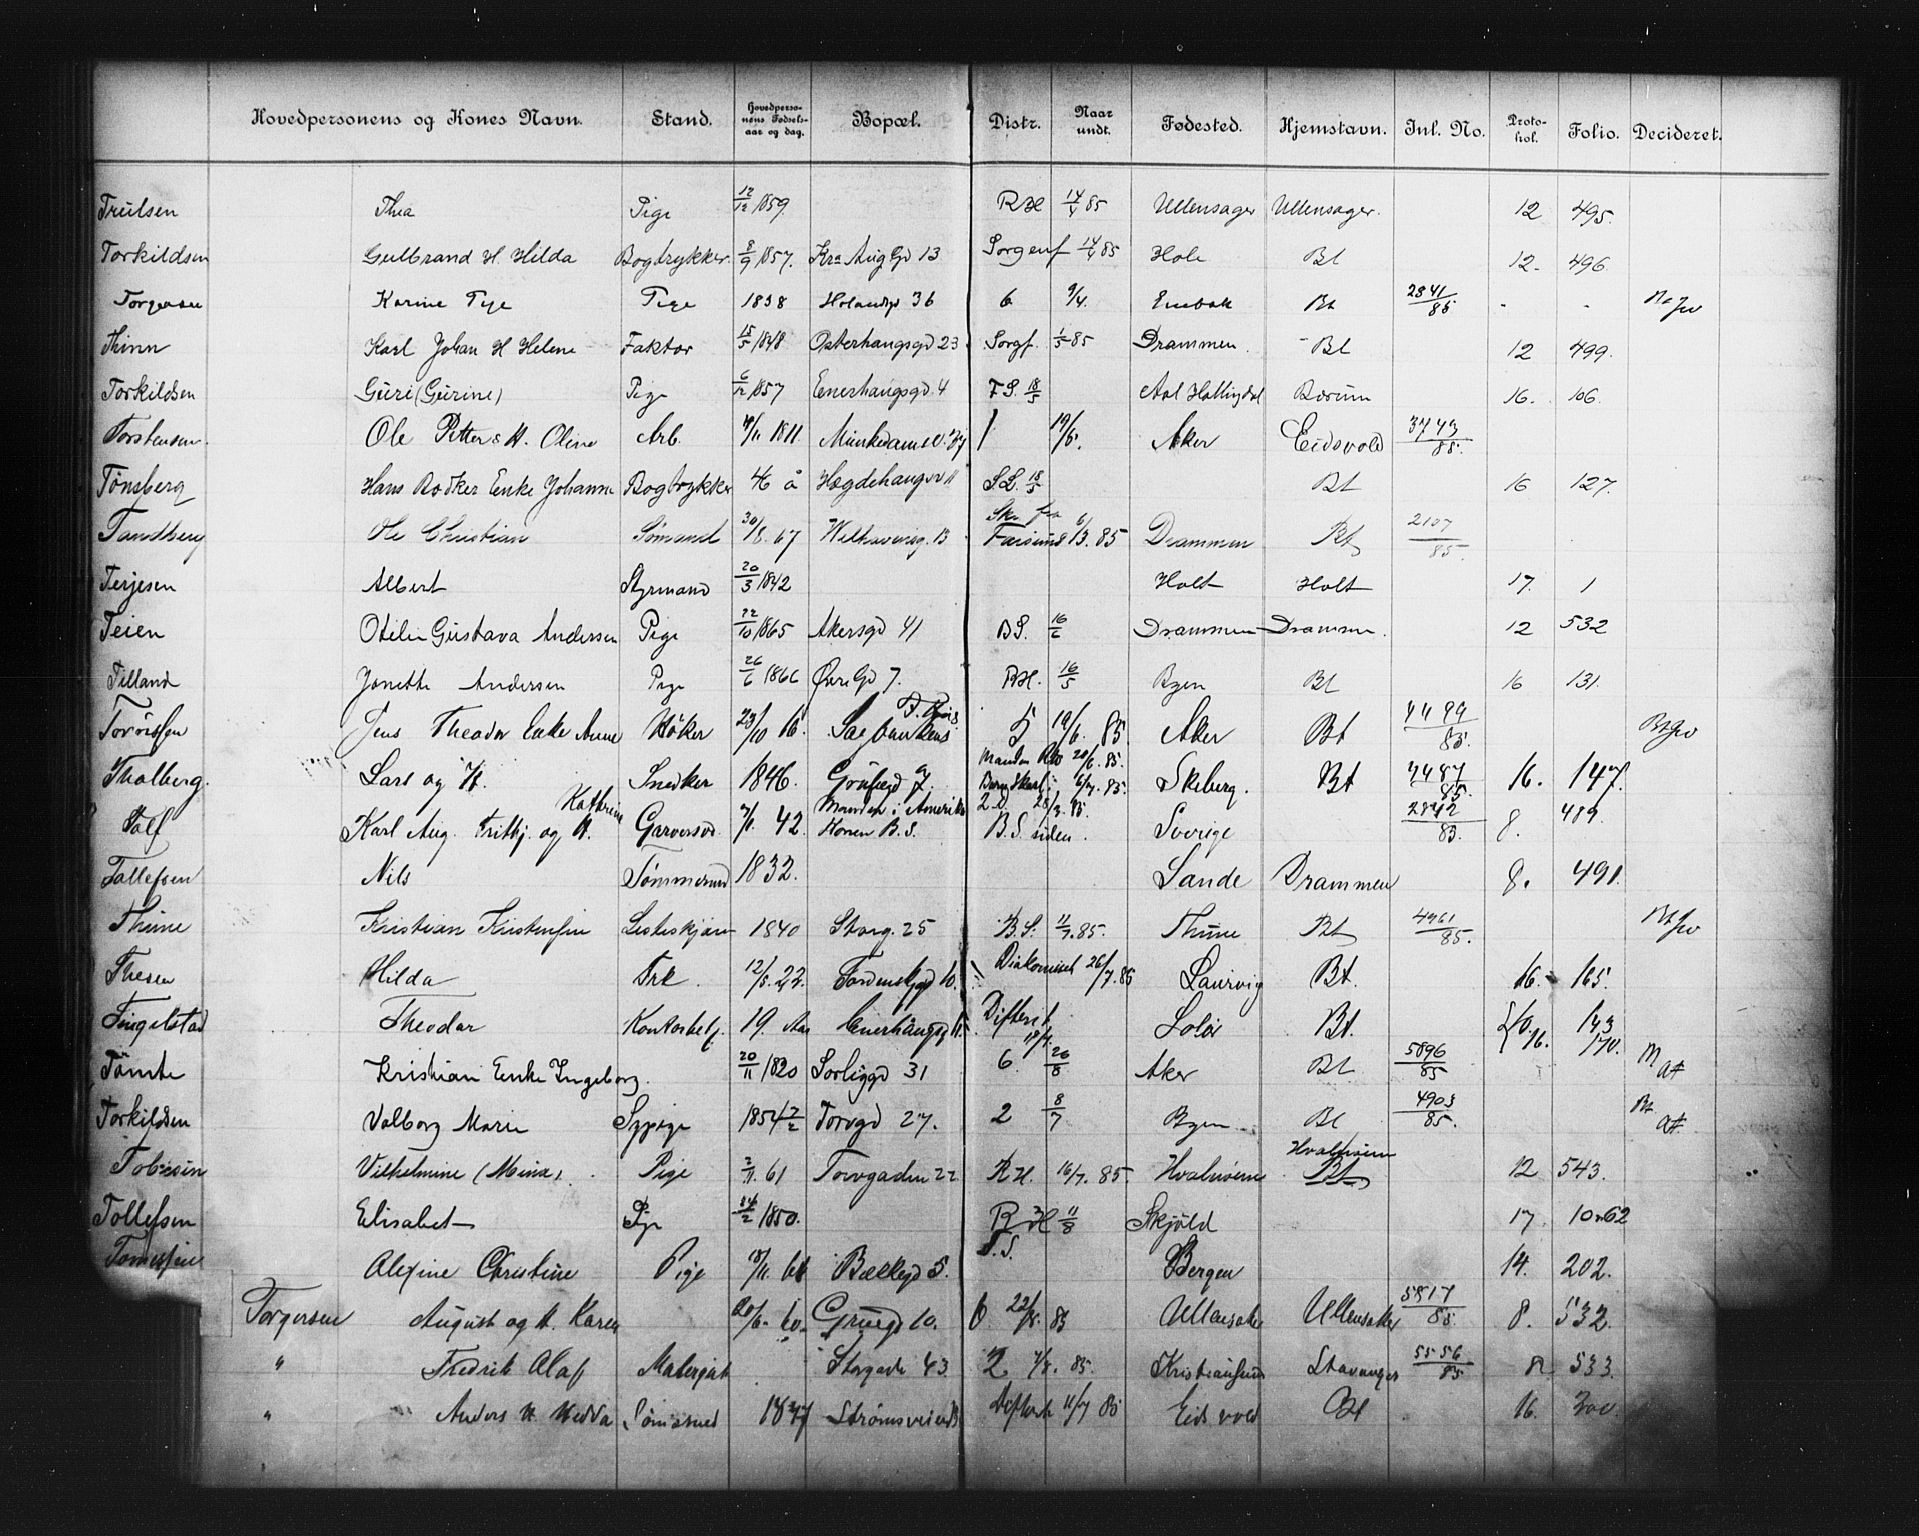 Hovedpersonens og Kones Navn. Stand. Hovedpersonens Fødselsaar og dag. Bopæl. Distr. Naar undt. Fødested. Hjemstavn. Inl. No. Protokol. Folio. Decideret.
Trulsen Thea Pige 12/12 1859. RH 14/4 85 Ullensager Ullensager. 12 495.
Torkildsen Gulbrand H. Hilda Bogtrykker 8/9 1857. Krn Aug Gd 13 Sorgenf 14/4 85 Hole Bt 12. 496
Torgersen Karine Pige 1838 36 6 9/4. Enebak Bt 2841/85 - -
Thinn Karl Johan H Helene Faktor 15/5 1848 Østerhaugsgd 23 Sorgf. 1/5 85 Drammen Bt 12 499.
Torkildsen Guri (Gurine) Pige 6/12 1857 Enerhaugsgd 4 F.S. 18/5 Aal Hallingdal Bærum 16. 106.
Torstensen. Ole Petter & H. Oline Arb. 4/11 1811. Munkedamsv. 1 19/5. Aker Eidsvold 3743/85.
Tønsberg Hans Bødker Enke Johanne Bogtrykker 46 å Hægdehaugsv 11 S.L. 18/5 Bt 16 127.
Tandberg Ole Christian Sømand 30/8. 67 Welhavensg. 13 Ska fra Farsund 6/3. 85 Drammen Bt 2107/85.
Terjesen Albert Styrmand 20/3 1842 Holt Holt 17. 1
Teien Otilie Gustava Andersen Pige 22/10 1865 Akersgd 41 B.S. 16/6 Drammen Drammen. 12 532
Tilland Jonette Andersen Pige 26/6 1866 Øvre Gd 7. RH. 16/5 Byen Bt 16 131.
Jens Theodor Enke Anne Høker 23/10 16. 5 19/6. 85. Aker Bt 4499/85.
Thalberg. Lars og H. Snedker 1846. 7. Manden 20/6. 85. 6/7. 85. Skeberg. Bt 16. 147.
Karl Aug. Frithj. og H. Kathrine Garversv. 42. Manden i Amerika Konen B.S. B.S. siden. Sverige 8. 489.
Tollefsen Nils Tømmermd 1832. Sande Drammen 8. 491.
Thune Kristian Kristensen 1840 Storg. 25 B.S. 11/7. 85. Thune Bt 4961/85.
Thesen Hilda Frk. 12/5. 22. 10. Diakonisset 26/7. 85 Laurvig Bt. 16. 165.
Tingelstad Theodor Kontorbetj. 19. Aar Enerhaugsg 11. Difterit 18/7. Solør Bt. 10. 16. 143 170.
Tømte Kristian Enke Ingeborg. 20/11 1820 Sorligd 31 6. 26/8 Aker Bt 5896/85
Torkildsen Valborg Marie Sypige 1854 2/2 Torvgd 27. 2 8/7 Byen Bt 4903/85.
Tobiesen Vilhelmine (Mina). Pige 2/11. 61 Torvgaden 22 RH. 16/7. 85. Hvalsøerne Hvalsøerne Bt 12 543.
Tollefsen Elisabet Pige 24/2 1850. RH 11/8 Skjöld 17. 10262
Alexine Christine Pige 18/11. 61 Bækkegd 5. F.S. Bergen 14. 202.
Torgersen August og H. Karen 20/6. 60. Grüngd 10. 6 22/8. 85 Ullensaker Ullensaker 5817/85. 8. 532.
" Fredrik Olaf Malergut Storgade 43. 2 7/8. 85. Kristiansund Stavanger 5556/85 8. 533.
" Anders H Hedda 1837 Strømsveien 11/7 85 Eidsvold Bt 16. 300